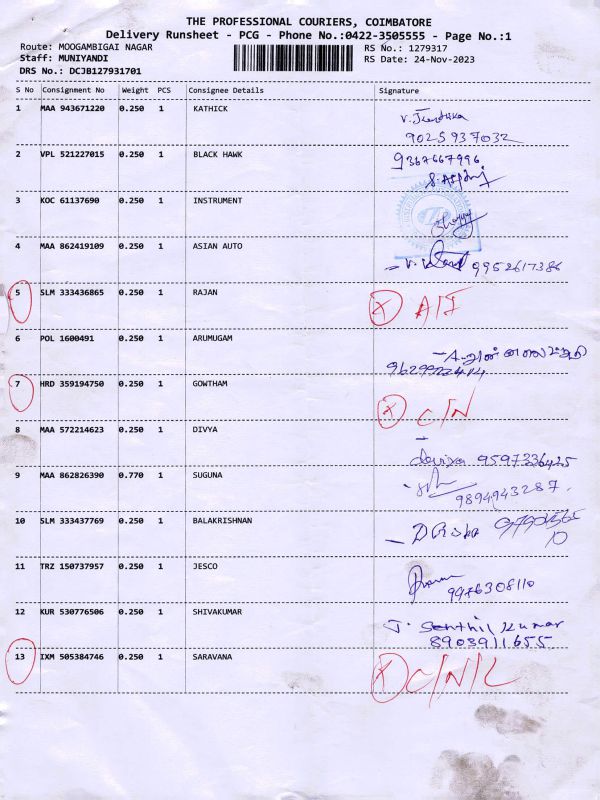 THE PROFESSIONAL COURIERS, COIMBATORE
Delivery Runsheet - PCG - Phone No.:0422-3505555 - Page No.:1
Route: MOOGAMBIGAI NAGAR RS No.: 1279317
Staff: MUNIYANDI RS Date: 24-Nov-2023
DRS No.: DCJB127931701
S No Consignment No Weight PCS Consignee Details Signature
1 MAA 943671220 0.250 1 KATHICK
9025937032
2 VPL 521227015 0.250 1 BLACK HAWK 9367667996
3 KOC 61137690 0.250 1 INSTRUMENT
4 MAA 862419109 0.250 1 ASIAN AUTO
9952617386
5 SLM 333436865 0.250 1 RAJAN
6 POL 1600491 0.250 1 ARUMUGAM
7 HRD 359194750 0.250 1 GOWTHAM
C/N
8 MAA 572214623 0.250 1 DIVYA
9597336425
9 MAA 862826390 0.770 1 SUGUNA
9894943287
10 SLM 333437769 0.250 1 BALAKRISHNAN
11 TRZ 150737957 0.250 1 JESCO
9976308110
12 KUR 530776506 0.250 1 SHIVAKUMAR
J. Senthil Kumar
8903911655
13 IXM 505384746 0.250 1 SARAVANA
C/N/L